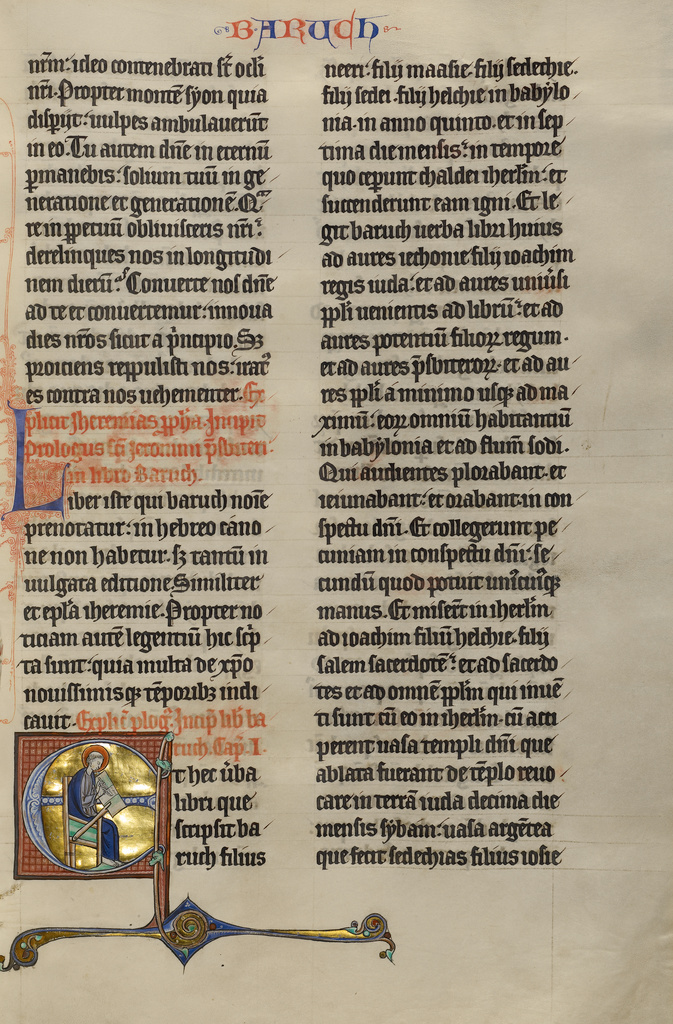 BARUCH
nr̄m: ideo contenebrati st̄ oc̄li
nr̄i. Propter montē syon quia
disperijt: uulpes ambulauerūt
in eo. Tu autem dn̄e in eternū
ꝑmanebis: solium tuū in ge
neratione et generationē. Qᵃ
re in ꝑpetuū obliuisceris nr̄i:
derelinques nos in longitudi
nem dierū? Conuerte nos dn̄e
ad te et conuertemur: innoua
dies nr̄os sicut a pͥncipio. Sꝫ
proiciens reppulisti nos: irat᷒
es contra nos uehementer. Ex
plicit Iheremias ꝓph̄a. Incipit
prologus sc̄i Ieronimi p̄sbiteri
in libro Baruch.
Liber iste qui baruch noīe
prenotatur: in hebreo cano
ne non habetur. sꝫ tantū in
uulgata editione Similiter
et ep̄la iheremie. Propter no
ticiam autē legentiū hic scͥp
ta sunt: quia multa de xp̄o
nouissimisqꝫ tēporibꝫ indi
cauit. Explic̄ plog᷒. Incip̄ lib̄ ba
ruch. Cap. I.
Et hec ūba
libri que
scripsit ba
ruch filius
neeri: filij maasie. filij sedechie.
filij sedei. filij helchie in babylo
nia. in anno quinto. et in sep
tima die mensis: in tempore
quo ceperunt chaldei iherl̄m: et
succenderunt eam igni. Et le
git baruch uerba libri huius
ad aures iechonie filij ioachim
regis iuda: et ad aures uniūsi
ppl̄i uenientis ad librū: et ad
aures potentiū filioꝝ regum.
et ad aures p̄sbiteroꝝ. et ad au
res ppl̄i a minimo usqꝫ ad ma
ximū: eoꝝ omniū habitantiū
in babylonia et ad flum̄ sodi.
Qui audientes plorabant. et
ieiunabant: et orabant. in con
spectu dn̄i. Et collegerunt pe
cuniam in conspectu dn̄i: se
cundū quod potuit uniᵘcuiᵘsqꝫ
manus. Et miserūt in iherl̄m
ad ioachim filiū helchie. filij
salem sacerdotē: et ad sacerdo
tes et ad omnē ppl̄m qui inuē
ti sunt cū eo in iherl̄m. cū acci
perent uasa templi dn̄i que
ablata fuerant de tēplo reuo
care in terrā iuda decima die
mensis sybam: uasa argētea
que fecit sedechias filius iosie